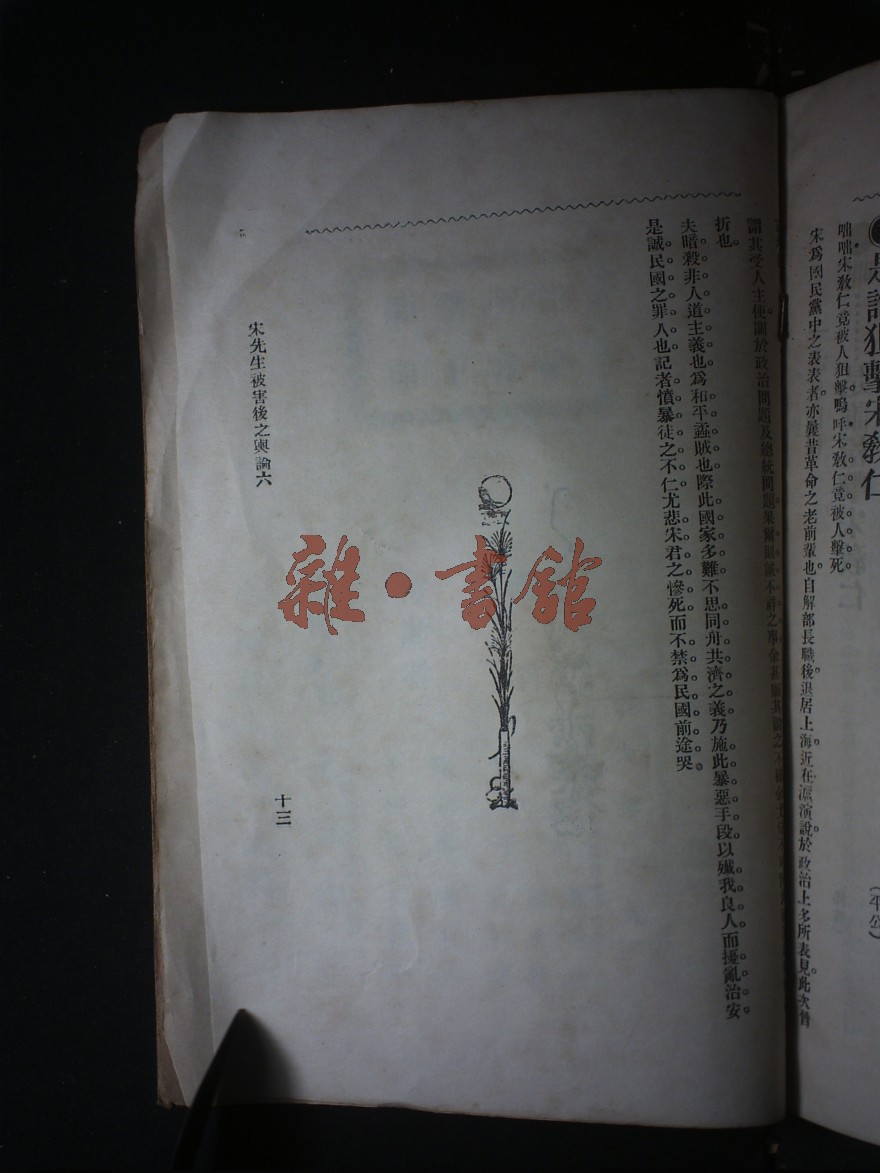 狙擊宋敎仁
(平公)
咄咄宋敎仁竟被人狙擊。嗚呼宋敎仁。竟被人擊死。
宋爲國民黨中之表表者。亦曩昔革命之老前輩也。自解部長職後。退居上海。近在滬演說。於政治上多所表見。此次曾
謂其受人主使關於政治問題及總統問題果爾
折也。
夫暗殺非人道主義也。爲和平蟊賊也。際此國家多難。不思同舟共濟之義。乃施此暴惡手段。以殲我良人。而擾亂治安。
是誠民國之罪人也。記者憤暴徒之不仁。尤悲宋君之慘死。而不禁爲民國前途哭。
宋先生被害後之輿論六
十三
雜·書館